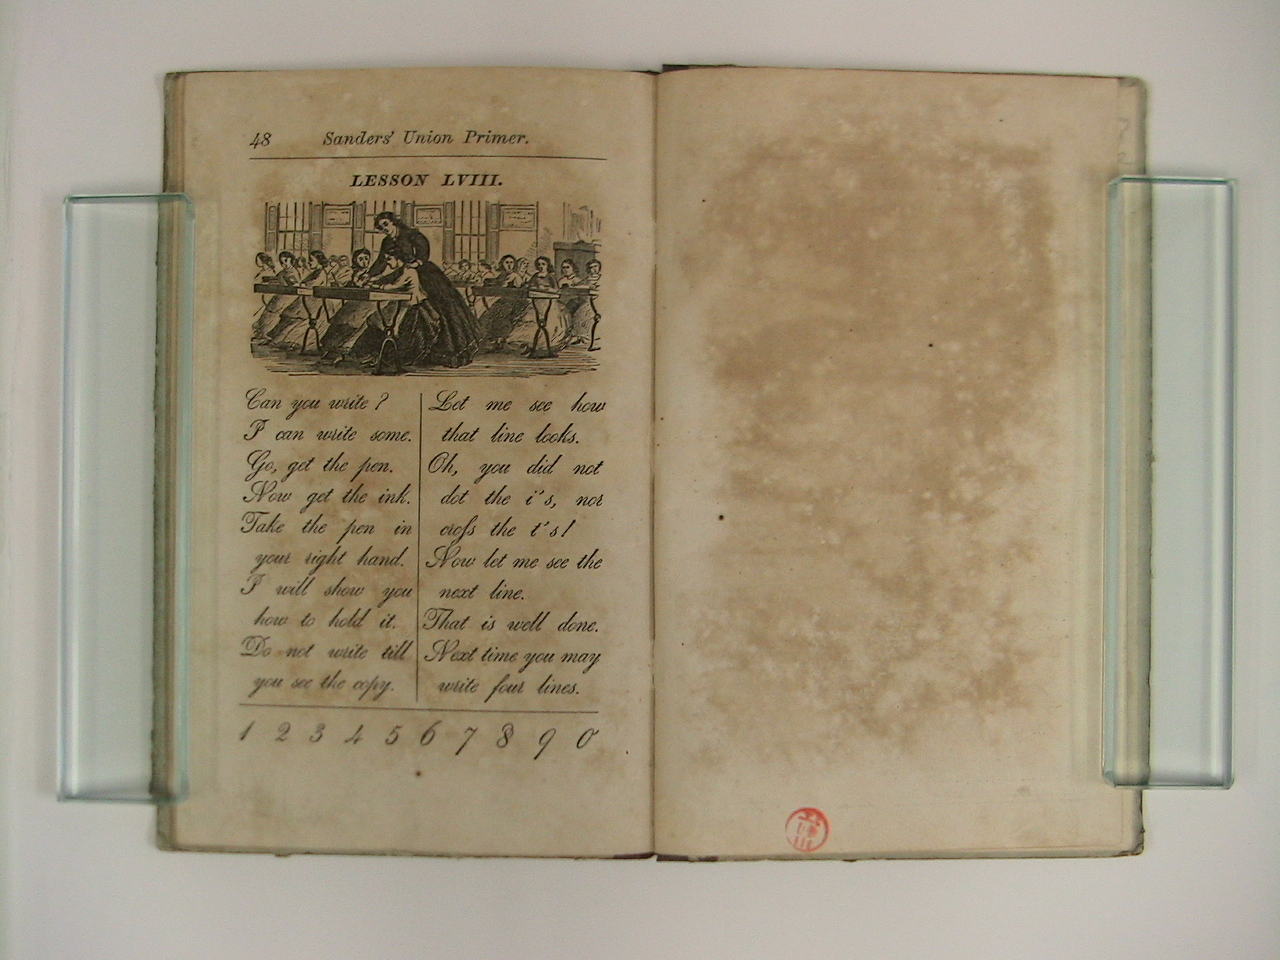 48 Sanders' Union Primer.
LESSON LVIII.
Can you write?
I can write some.
Go, get the pen.
Now get the ink.
Take the pen in
your right hand.
I will show you
how to hold it.
Do not write till
you see the copy.
Let me see how
that line looks.
Oh, you did not
dot the i's, nor
croſs the t's!
Now let me see the
next line.
That is well done.
Next time you may
write four lines.
1 2 3 4 5 6 7 8 9 0